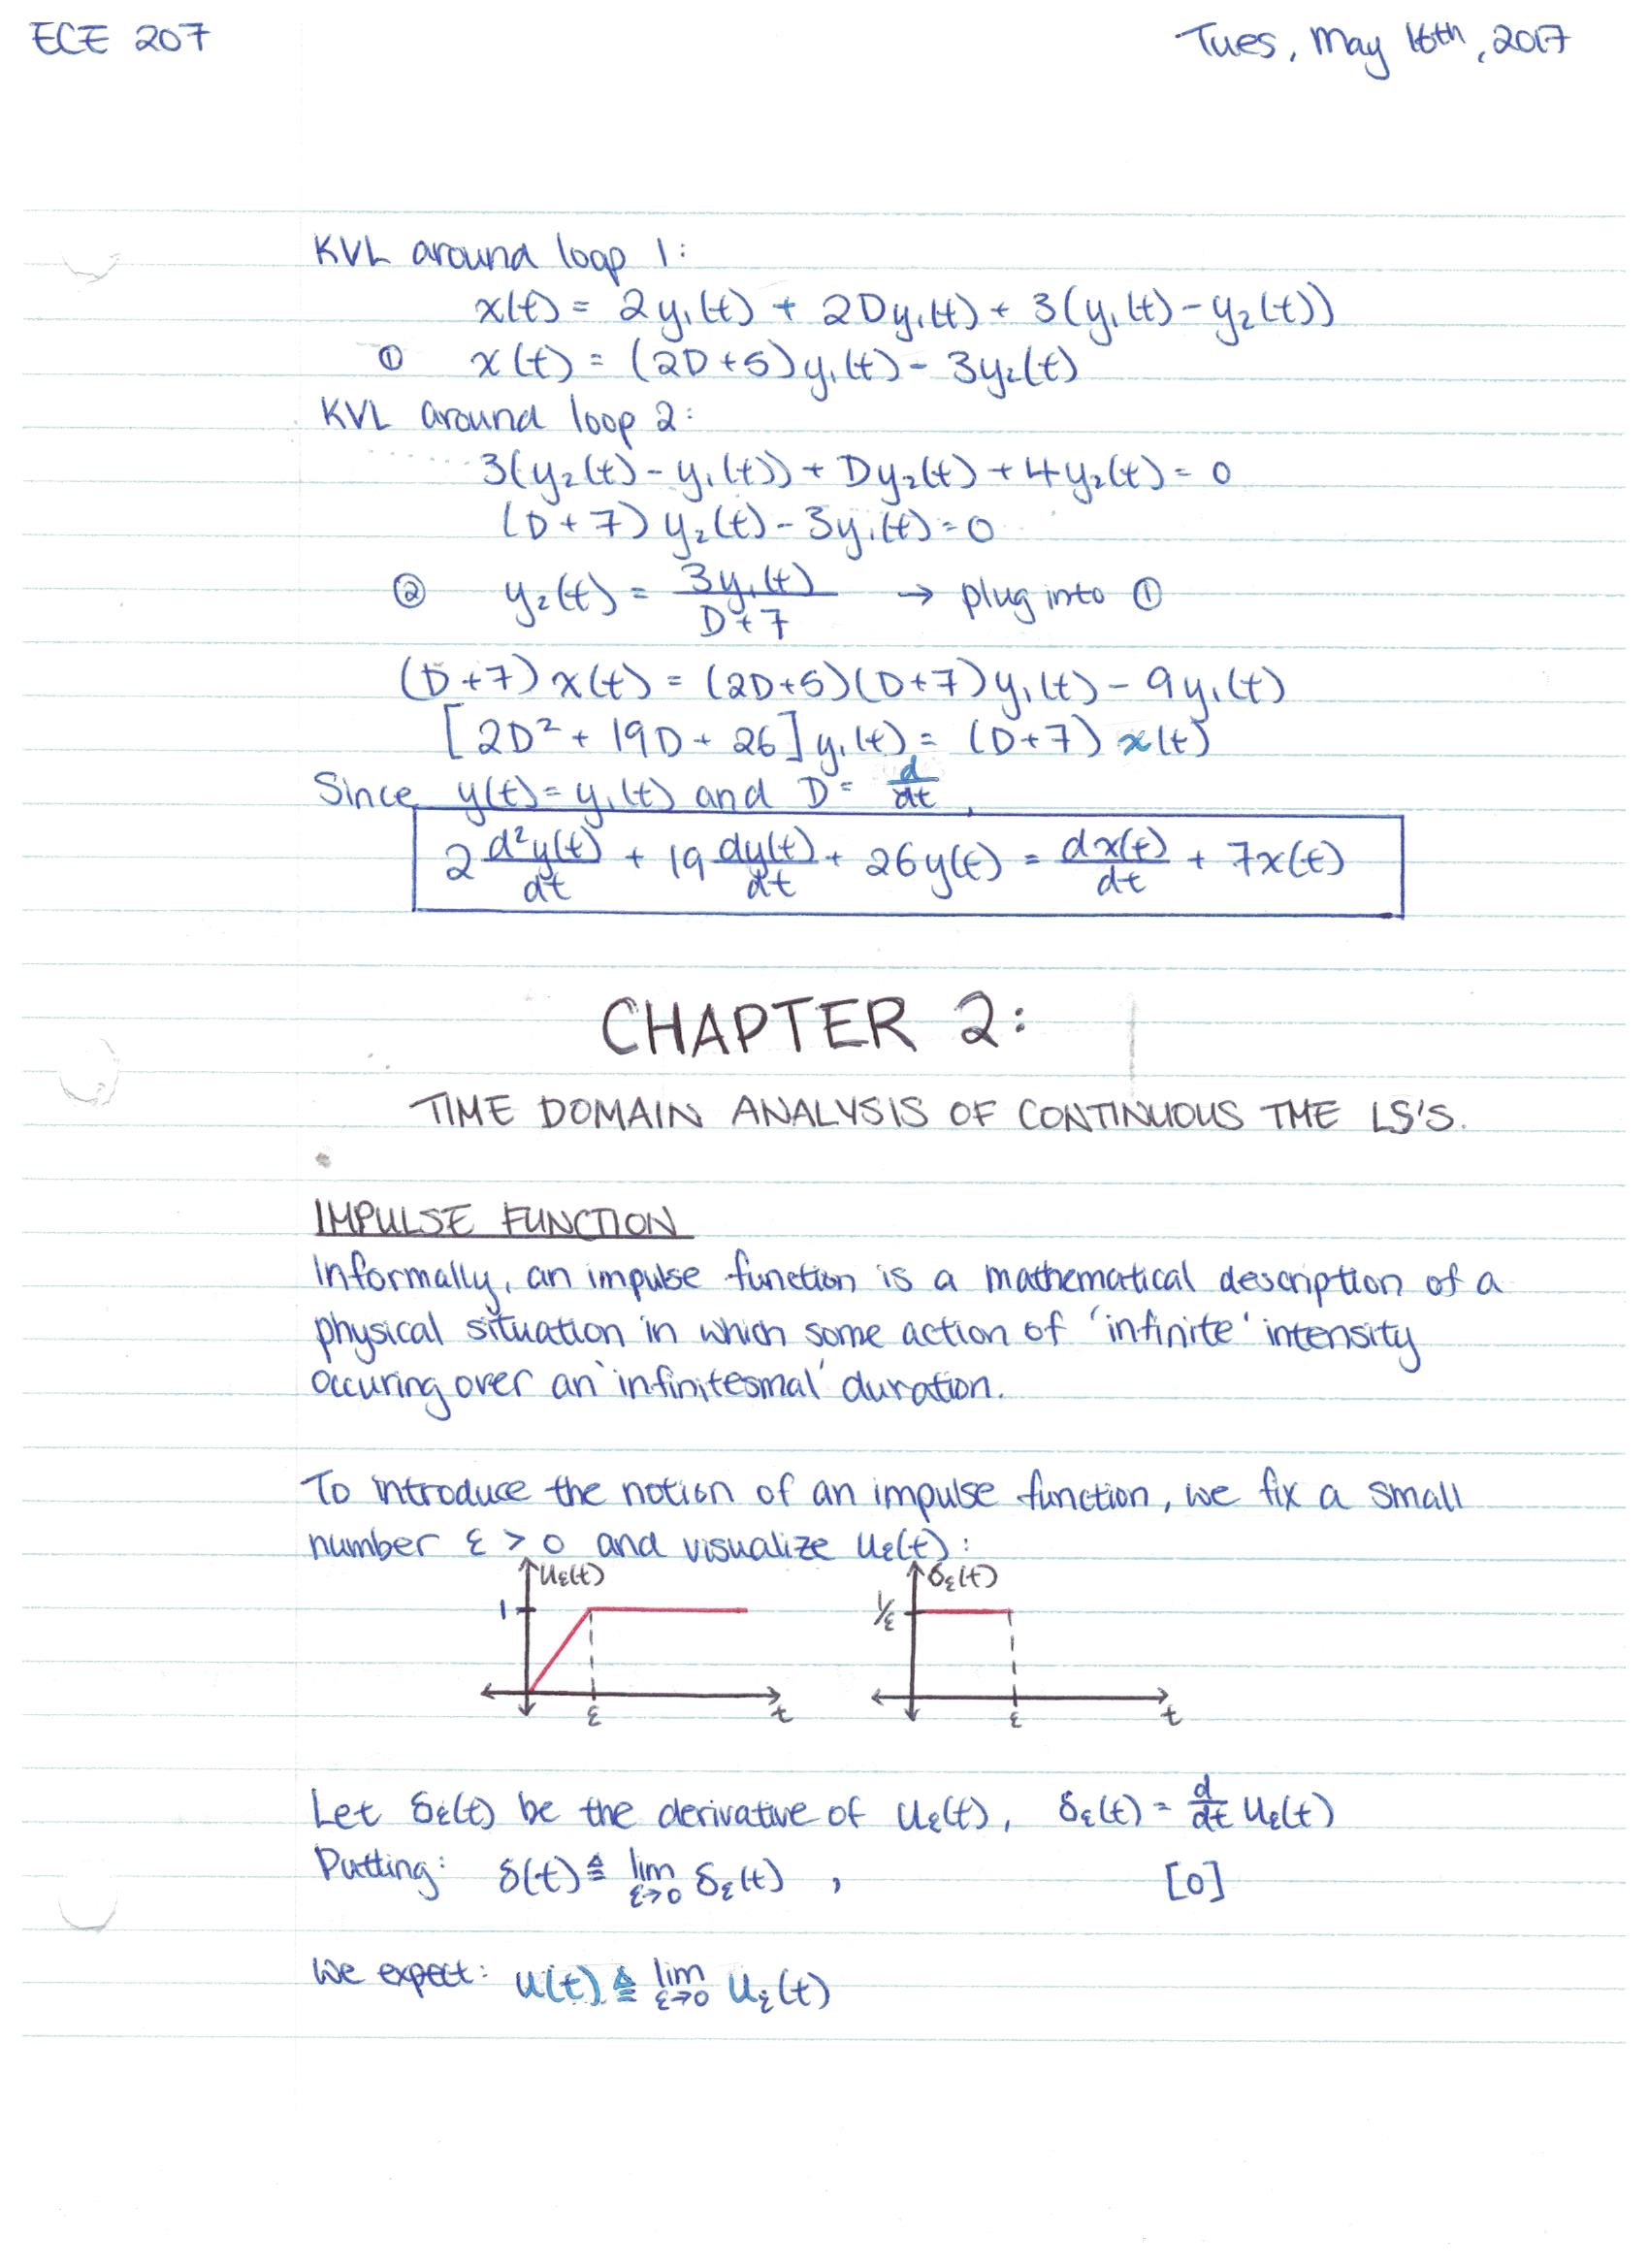 ECE 207
Tues, May 16th, 2017
KVL around loop 1:
x(t) = 2y₁(t) + 2Dy₁(t) + 3(y₁(t) - y₂(t))
① x(t) = (2D+5)y₁(t) - 3y₂(t)
KVL around loop 2:
3(y₂(t) - y₁(t)) + Dy₂(t) + 4y₂(t) = 0
(D+7)y₂(t) - 3y₁(t) = 0
② y₂(t) = 3y₁(t)/D+7 → plug into ①
(D+7)x(t) = (2D+5)(D+7)y₁(t) - 9y₁(t)
[2D² + 19D + 26]y₁(t) = (D+7) x(t)
Since y(t) = y₁(t) and D = d/dt,
2 d²y(t)/dt + 19 dy(t)/dt + 26y(t) = dx(t)/dt + 7x(t)
CHAPTER 2:
TIME DOMAIN ANALYSIS OF CONTINUOUS TME LS'S.
IMPULSE FUNCTION
Informally, an impulse function is a mathematical description of a
physical situation in which some action of 'infinite' intensity
occuring over an 'infinitesmal' duration.
To introduce the notion of an impulse function, we fix a small
number ε > 0 and visualize uε(t):
uε(t) δε(t)
1 1/ε
ε t ε t
Let δε(t) be the derivative of uε(t), δε(t) = d/dt uε(t)
Putting: δ(t) ≜ lim ε→0 δε(t), [0]
We expect: u(t) ≜ lim ε→0 uε(t)